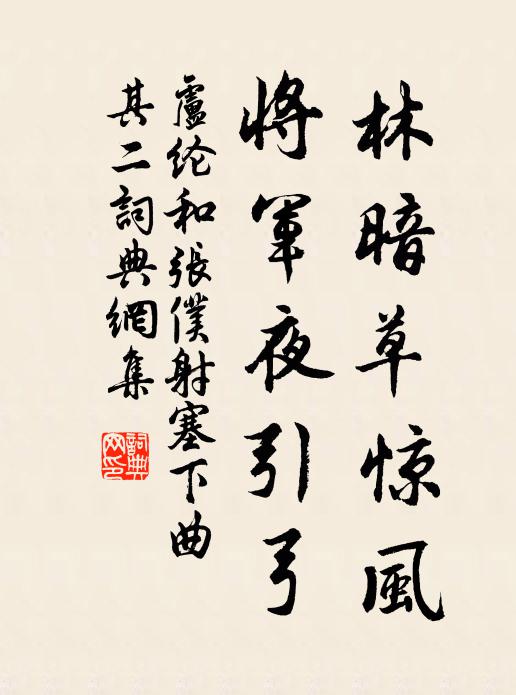 林暗草惊風
將軍夜引弓
盧纶和張僕射塞下曲
其二詞典網集
詞典网印